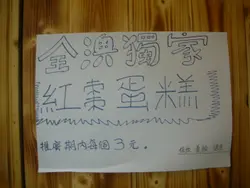 全澳獨家
紅棗蛋糕
推廣期內每個3元。